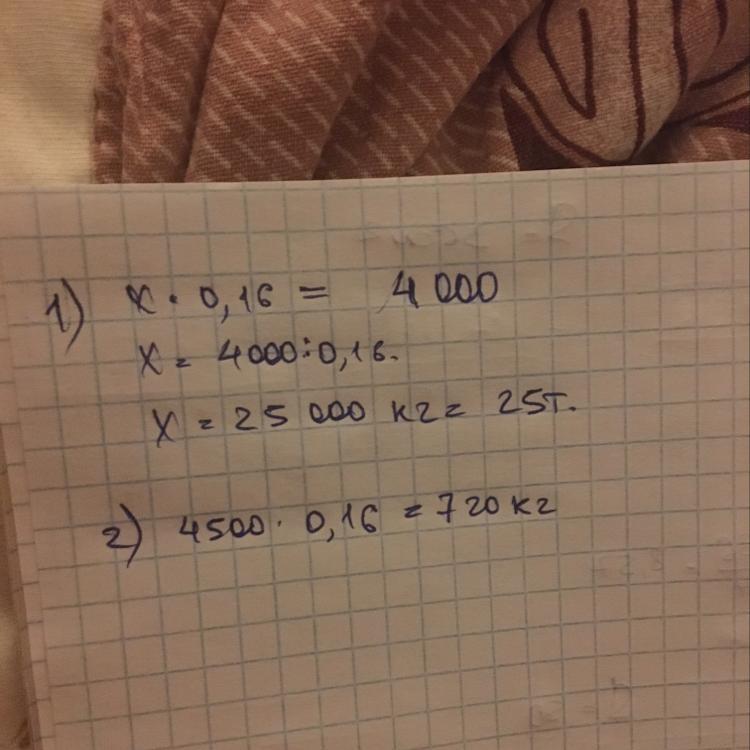 1) x · 0,16 = 4 000
x = 4000÷0,16.
x = 25 000 кг = 25т.
2) 4500 · 0,16 = 720 кг